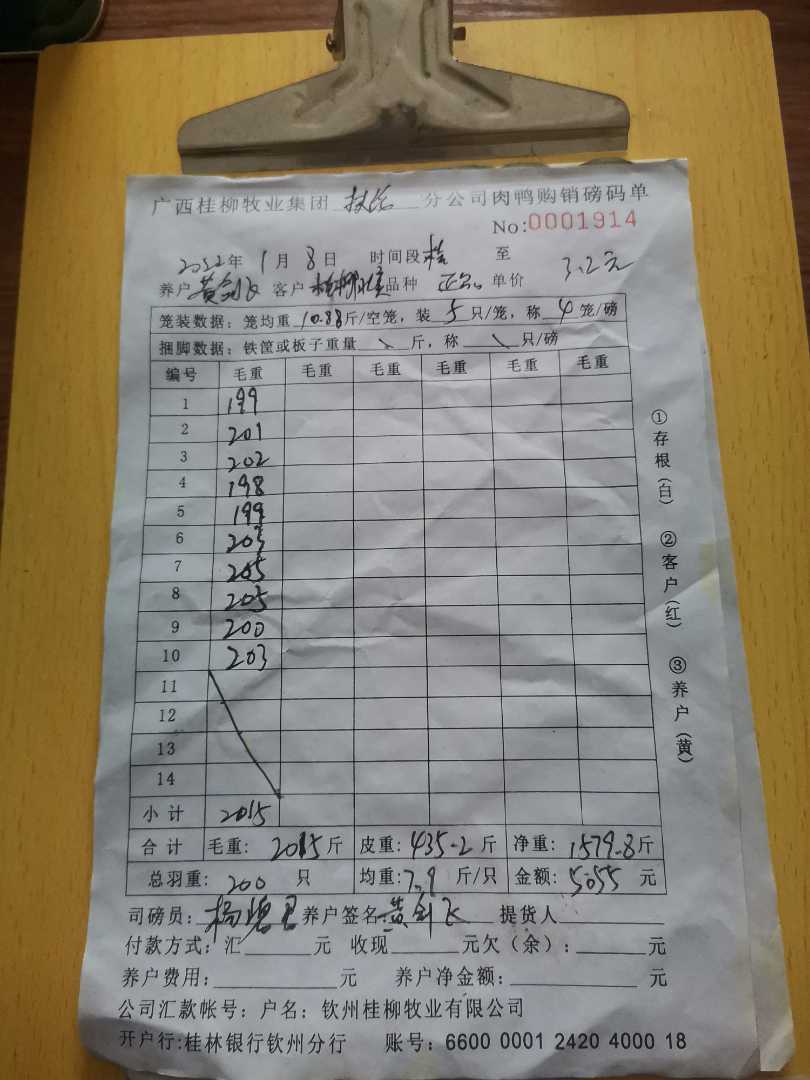 广西桂柳牧业集团 分公司肉鸭购销磅码单
No:0001914
2022年1月8日 时间段 至
养户黄剑飞 客户 品种 单价 3.2元
笼装数据：笼均重10.88斤/空笼，装5只/笼，称4笼/磅
捆脚数据：铁筐或板子重量 \ 斤，称 \ 只/磅
编号 毛重 毛重 毛重 毛重 毛重 毛重
1 199
2 201
3 202
4 198
5 199
6 203
7 205
8 205
9 200
10 203
11
12
13
14
小计 2015
合计 毛重：2015斤 皮重：435.2斤 净重：1579.8斤
总羽重：200只 均重：7.9斤/只 金额：5055元
司磅员：杨 养户签名黄剑飞 提货人
付款方式：汇 元 收现 元欠（余）： 元
养户费用： 元 养户净金额： 元
公司汇款帐号：户名：钦州桂柳牧业有限公司
开户行:桂林银行钦州分行 账号：6600 0001 2420 4000 18
①存根（白） ②客户（红） ③养户（黄）